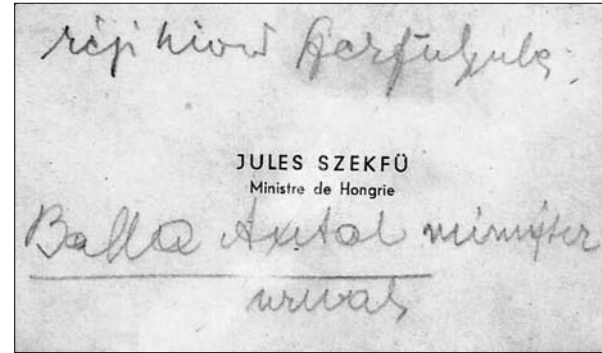 régi hived Szekfü Gyula
JULES SZEKFÜ
Ministre de Hongrie
Balla Antal miniszter
urnak